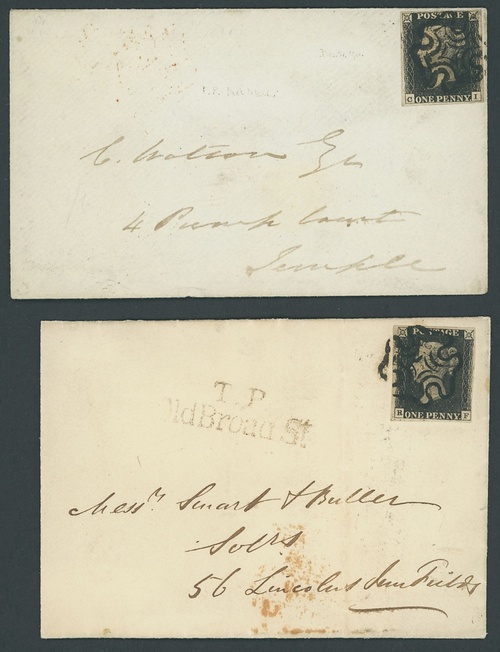 POSTAGE
C I
ONE PENNY
C. Watson Esq
4 Pump Court
Temple
POSTAGE
R F
ONE PENNY
T.P
Old Broad St
Messrs Smart & Buller
Solrs
56 Lincolns Inn Fields